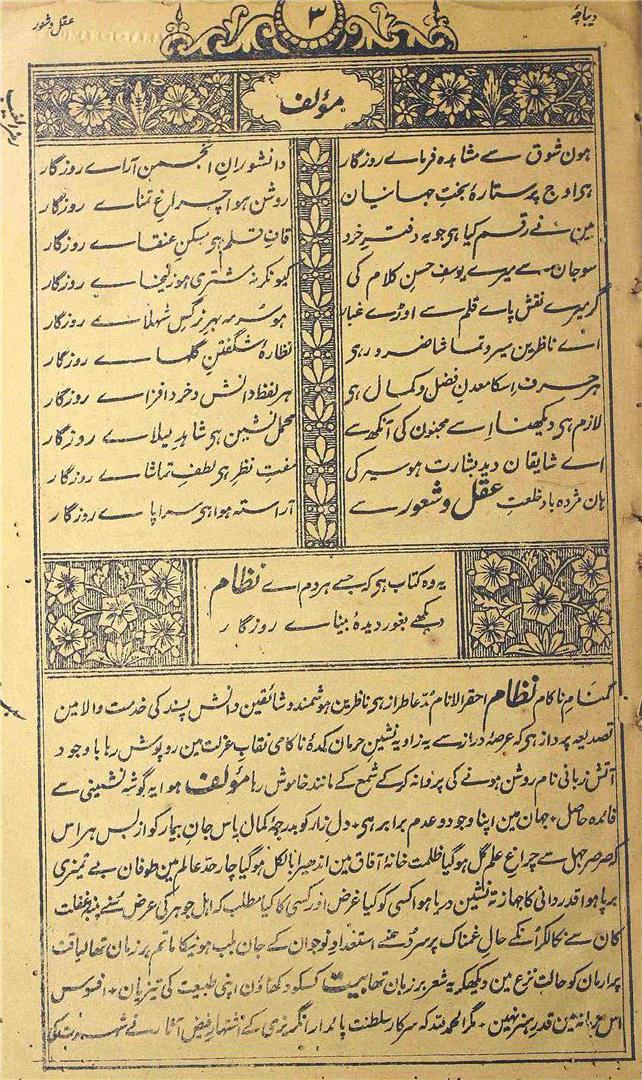 دیباچہ
۳
عقل و شعور
مؤلف
ہون شوق سے مشاہدہ فرماے روزگار دانشورانِ انجمن آراے روزگار
ہی اوج پر ستارۂ بختِ جہانیان روشن ہوا چراغِ تمناے روزگار
مین نے رقم کیا ہی جو یہ دفترِ خرد قافِ قلم ہی مسکنِ عنقاے روزگار
سو جان سے میرے یوسفِ حسنِ کلام کی کیونکر نہ مشتری ہو زلیخاے روزگار
گر میرے نقش پاے قلم سے اوڑے غبار ہو سرمہ بہر نرگسِ شہلاے روزگار
اے ناظرین سیر و تماشا ضرور ہی نظارۂ شگفتنِ گلہاے روزگار
ہر حرف اسکا معدنِ فضل و کمال ہی ہر لفظ دانش و خرد افزاے روزگار
لازم ہی دیکھنا اسے مجنون کی آنکھ سے محمل نشین ہی شاہدِ لیلاے روزگار
اے شایقانِ دید بشارت ہو سیر کی مفتِ نظر ہی لطفِ تماشاے روزگار
ہان مژدہ باد خلعتِ عقل و شعور سے آراستہ ہوا ہی سراپاے روزگار
یہ وہ کتاب ہی کہ جسے ہر دم اے نظام
دیکھے بغور دیدۂ بیناے روزگار
گمنام ناکام نظام احقر الانام مدعا طراز ہی ناظرین ہوشمند و شائقین دانش پسند کی خدمت والا مین
تصدیعہ پرداز ہی کہ عرصۂ دراز سے یہ زاویہ نشین حرمان کدۂ ناکامی نقاب عزلت مین روپوش رہا باوجود
آتش زبانی نام روشن ہونے کی پروا نہ کرکے شمع کے مانند خاموش رہا مؤلف ہوا یہ گوشہ نشینی سے
فائدہ حاصل ٭ جہان مین اپنا وجود و عدم برابر ہی ٭ دل زار کو بدرجۂ کمال یاس جان بیمار کو از بس ہراس
کہ صرصر جہل سے چراغ علم گل ہوگیا ظلمت خانۂ آفاق مین اندھیرا بالکل ہوگیا چار حد عالم مین طوفان بے تمیزی
برپا ہوا قدردانی کا جہاز تہ نشین دریا ہوا کسی کو کیا غرض اور کسی کا کیا مطلب کہ اہل جوہر کی عرض سنے پنبۂ غفلت
کان سے نکالکر انکے حال غمناک پر سر دھنے استعداد نوجوان کے جان بلب ہونیکا ماتم ہر زبان تھا لیاقت
پر ارمان کو حالت نزع مین دیکھکر یہ شعر بر زبان تھا بیت کسکو دکھاؤن اپنی طبیعت کی تیزیان ٭ افسوس
اس زمانہ مین قدر ہنر نہین ٭ مگر الحمد للہ کہ سرکار سلطنت پائدار انگریزی کے اشتہار فیض آثار نے